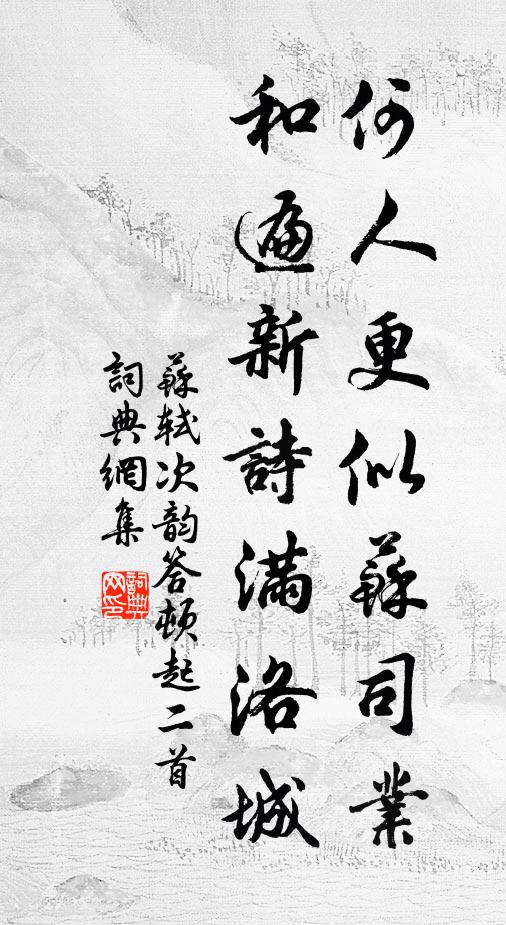 何人更似蘇司業
和遍新詩滿洛城
蘇軾次韵答頓起二首
詞典網集
詞典网印